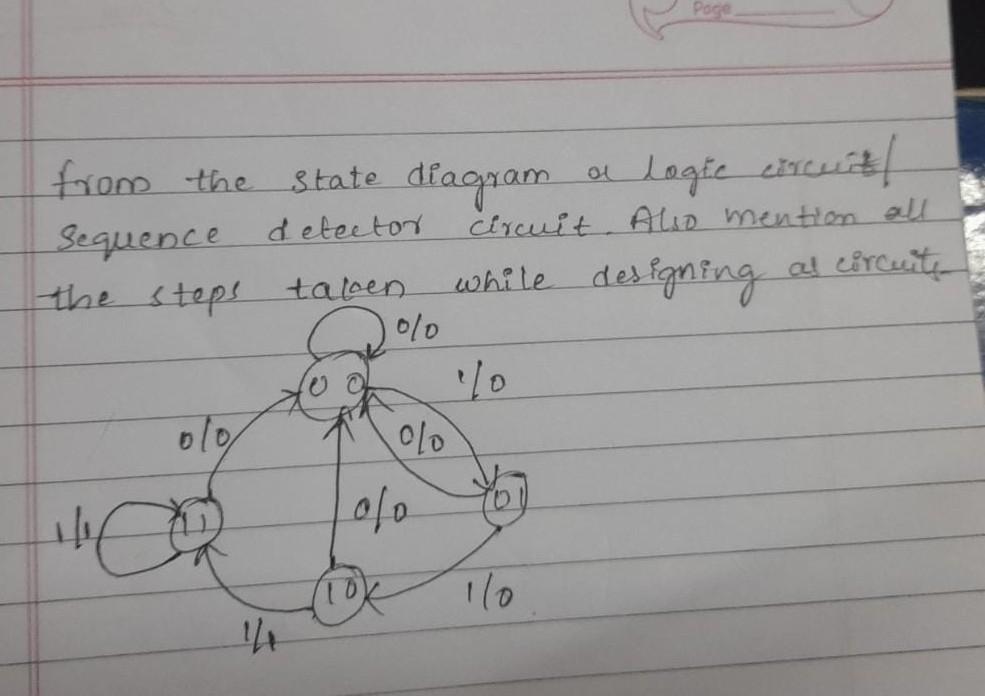 Page
from the state diagram a logic circuit/
sequence detector circuit. Also mention all
the steps taken while designing as circuit.
0/0
0 0
1/0
0/0
0/0
0 1
1/1
1 1
0/0
1 0
1/0
1/1